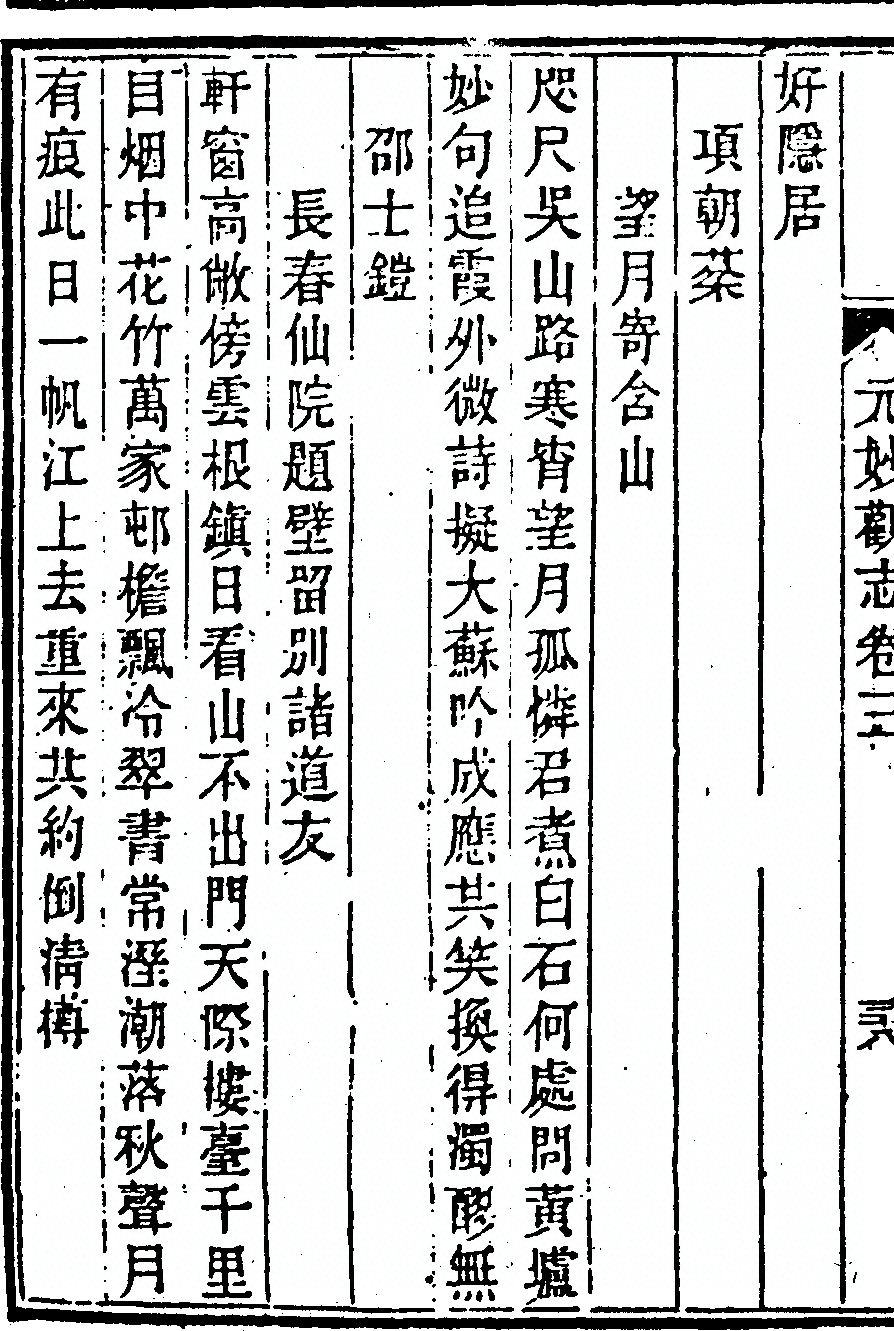 元妙觀志卷十二 弐
好隱居
項朝蕖
望月寄含山
咫尺吳山路寒宵望月孤憐君煮白石何處問黃壚
妙句追霞外微詩擬大蘇吟成應共笑換得濁醪無
邵士鎧
長春仙院題壁留別諸道友
軒窗高敞傍雲根鎮日看山不出門天際摟臺千里
目烟中花竹萬家邨檐飄冷翠書常溼潮落秋聲月
有痕此日一帆江上去重來共約倒清樽